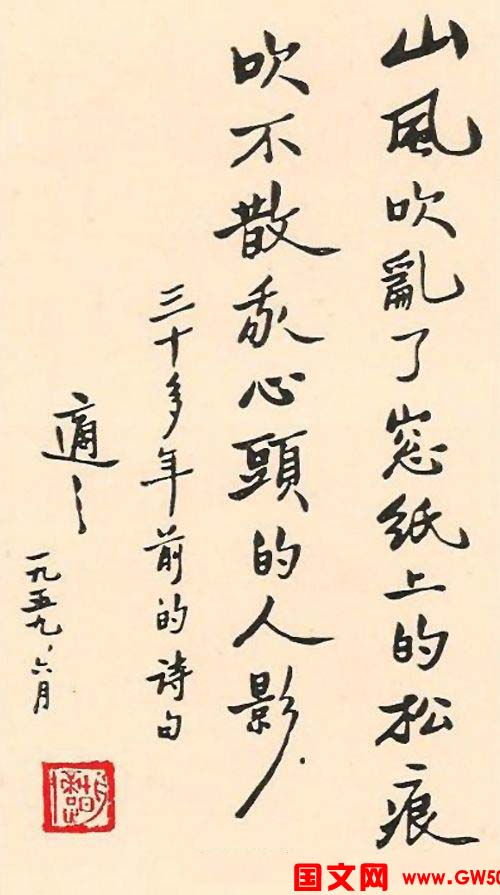 山風吹亂了窓纸上的松痕
吹不散我心頭的人影.
三十多年前的詩句
適之
一九五九、六月
胡適
国文网 www.GW50